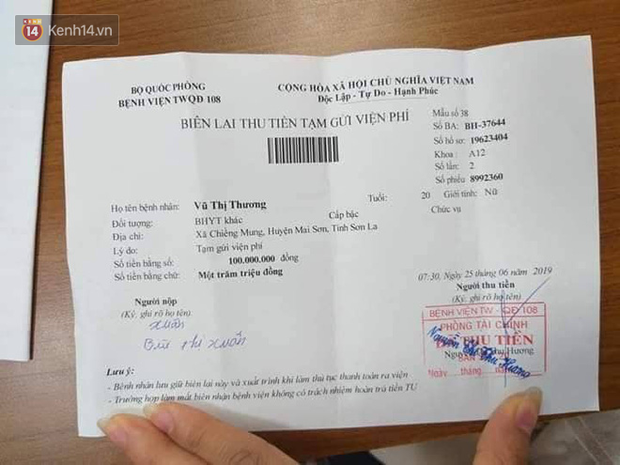 14 Kenh14.vn
BỘ QUỐC PHÒNG
BỆNH VIỆN TWQĐ 108
CỘNG HÒA XÃ HỘI CHỦ NGHĨA VIỆT NAM
Độc Lập - Tự Do - Hạnh Phúc
BIÊN LAI THU TIỀN TẠM GỬI VIỆN PHÍ
Mẫu số 38
Số BA: BH-37644
Số hồ sơ: 19623404
Khoa: A12
Số lần: 2
Số phiếu 8992360
Họ tên bệnh nhân: Vũ Thị Thương Tuổi: 20 Giới tính: Nữ
Đối tượng: BHYT khác Cấp bậc Chức vụ
Địa chỉ: Xã Chiềng Mung, Huyện Mai Sơn, Tỉnh Sơn La
Lý do: Tạm gửi viện phí
Số tiền bằng số: 100.000.000 đồng
Số tiền bằng chữ: Một trăm triệu đồng
07:30, Ngày 25 tháng 06 năm 2019
Người nộp
(Ký, ghi rõ họ tên)
Xuân
Bùi Thị Xuân
Người thu tiền
(Ký, ghi rõ họ tên)
BỆNH VIỆN TW QĐ 108
PHÒNG TÀI CHÍNH
ĐÃ THU TIỀN
Thu Hương
Ngày tháng
Lưu ý:
- Bệnh nhân lưu giữ biên lai này và xuất trình khi làm thủ tục thanh toán ra viện
- Trường hợp làm mất biên nhận bệnh viện không có trách nhiệm hoàn trả tiền TU